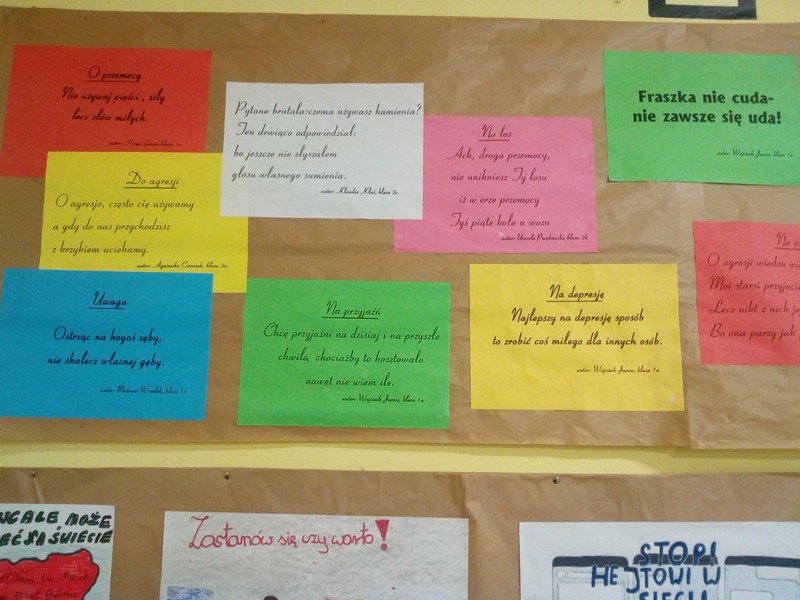 O przemocy
Nie używaj pięści, siły
lecz słów miłych.
autor: klasa 1a
Pytano brutala:czemu używasz kamienia?
Ten drwiąco odpowiedział:
bo jeszcze nie słyszałem
głosu własnego sumienia.
autor: Klaudia Kłuś, klasa 2c
Na los
Ach, droga przemocy,
nie unikniesz Ty losu
iż w erze przemocy
Tyś piąte koło u wozu
autor: Urszula klasa 2b
Fraszka nie cuda-
nie zawsze się uda!
autor: Wojciech Janus, klasa 1a
Do agresji
O agresjo, często cię używamy
a gdy do nas przychodzisz
z krzykiem uciekamy.
autor: Agnieszka Czerniak, klasa 3a
Uwaga
Ostrząc na kogoś zęby,
nie skalecz własnej gęby.
autor: Mateusz klasa 1a
Na przyjaźń
Chcę przyjaźni na dzisiaj i na przyszłe
chwile, chociażby to kosztowało
nawet nie wiem ile.
autor: Wojciech Janus, klasa 1a
Na depresję
Najlepszy na depresję sposób
to zrobić coś miłego dla innych osób.
autor: Wojciech Janus, klasa 1a
Na
O agresji wiedza
Moi starsi
Lecz nikt z nich
Bo ona parzy jak
MOŻE
ŚWIECIE
Zastanów się czy warto!
STOP!
HEJTOWI W
SIECI